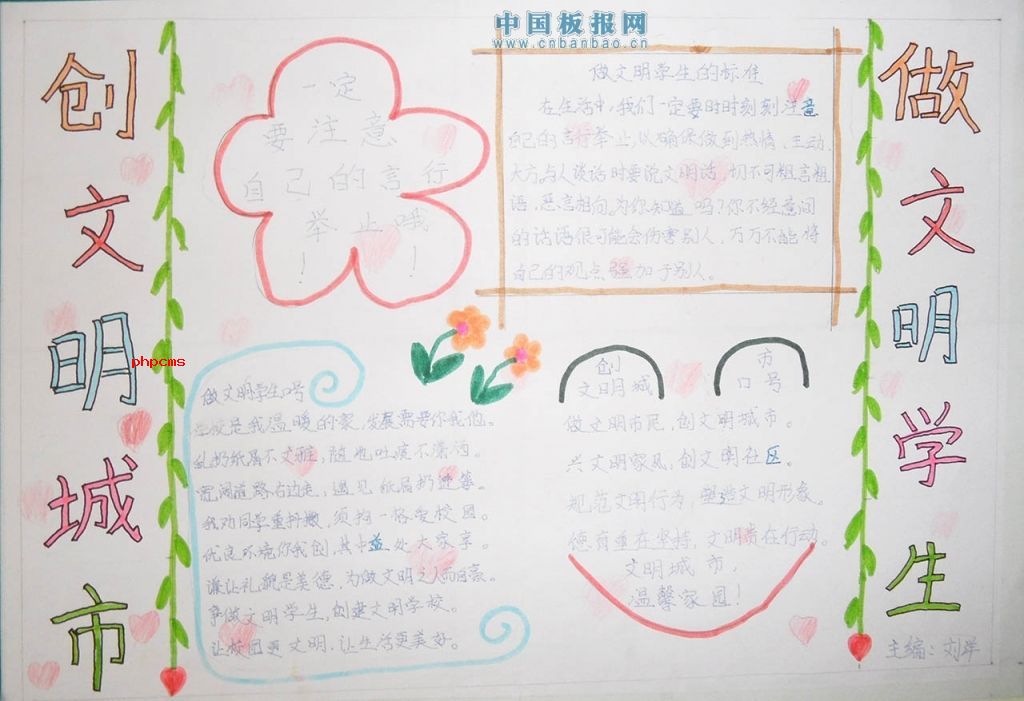 中国板报网
www.cnbanbao.cn
创文明城市
做文明学生
phpcms
一定
要注意
自己的言行
举止哦
！ ！
做文明学生的标准
在生活中，我们一定要时时刻刻注意
自己的言行举止，以确保做到热情、主动、
大方。与人谈话时要说文明话，切不可粗言粗
语，恶言相向。为你知道吗？你不经意间
的话语很可能会伤害别人，万万不能将
自己的观点强加于别人。
做文明学生口号
学校是我温暖的家，发展需要你我他。
乱扔纸屑不文雅，随地吐痰不潇洒。
道路右边走，遇见纸屑扔进篓。
我劝同学重抖擞，须拘一格爱校园。
优良环境你我创，其中益处大家享。
谦让礼貌是美德，为做文明之人而自豪。
争做文明学生，创建文明学校。
让校园更文明，让生活更美好。
创 市
文明城 口号
做文明市民，创文明城市。
兴文明家风，创文明社区。
规范文明行为，塑造文明形象。
德育重在坚持，文明贵在行动。
文明城市，
温馨家园！
主编：刘洋